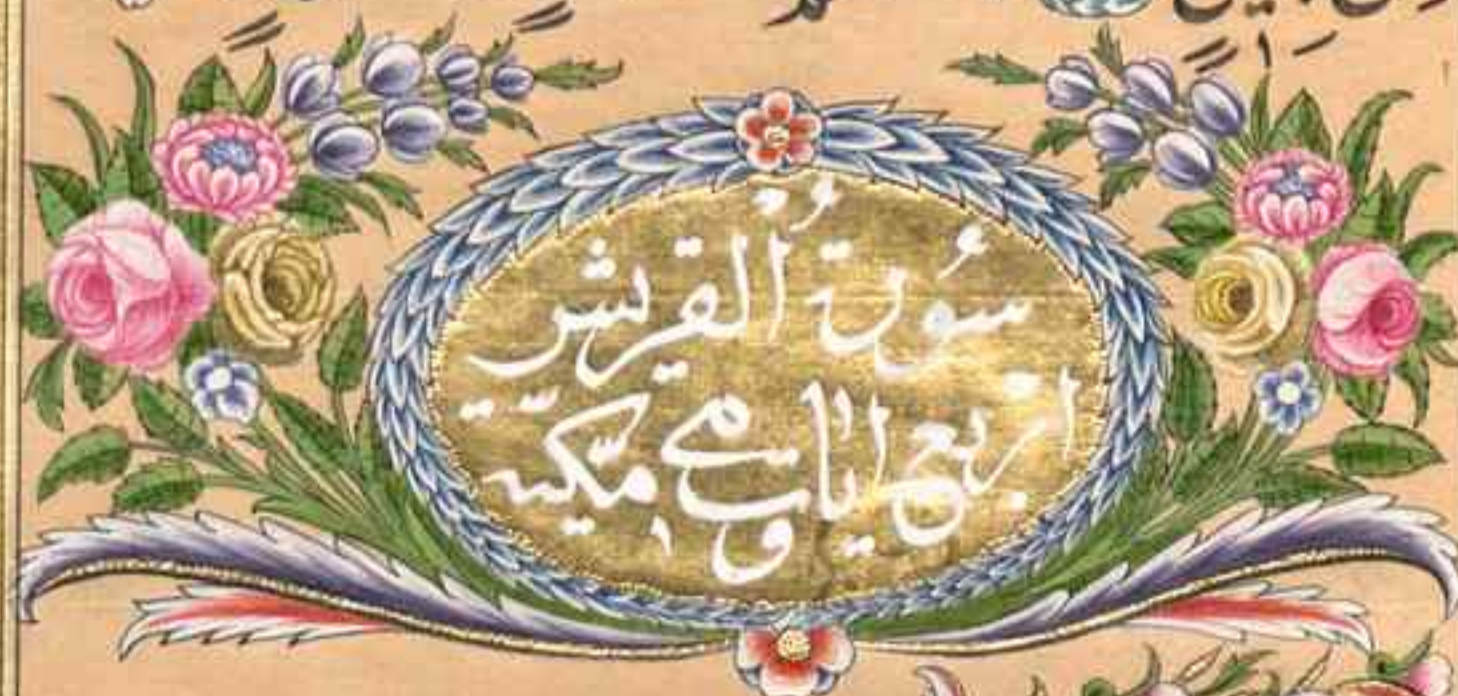 سُورة الْقريش
اربع اٰيات وهي مكّيّة